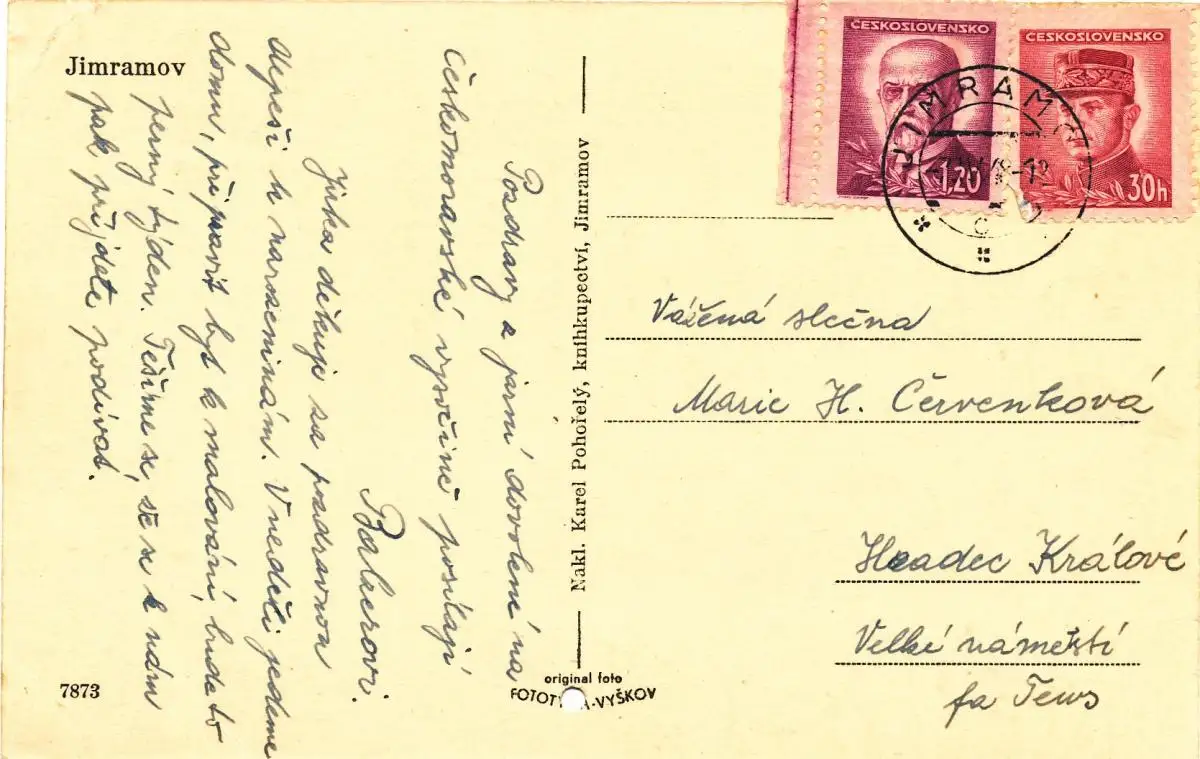 Jimramov
Pozdravy z jarní dovolené na
Českomoravské vysočině posílají
Balcerovi.
Jirka děkuje za pozdravnou
depeši k narozeninám. V neděli jedeme
domu, připravit byt k malování, bude to
perný týden. Těšíme se, že se k nám
pak přijdete podívat.
7873
Nakl. Karel Pohořelý, knihkupectví, Jimramov
original foto
FOTOTYPIA-VYŠKOV
ČESKOSLOVENSKO
1,20
ČESKOSLOVENSKO
30h
JIMRAMOV
Vážená slečna
Marie H. Červenková
Hradec Králové
Velké náměstí
fa Tews